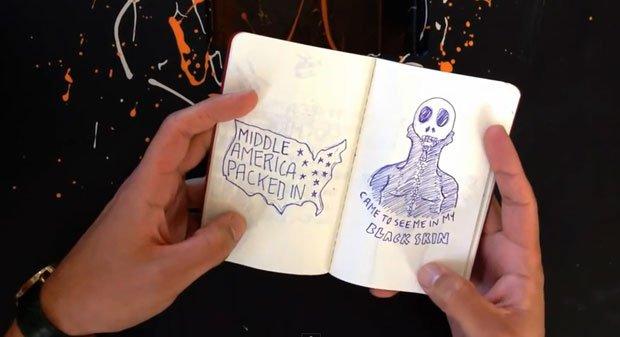 MIDDLE
AMERICA
PACKED IN
CAME TO SEE ME IN MY
BLACK SKIN